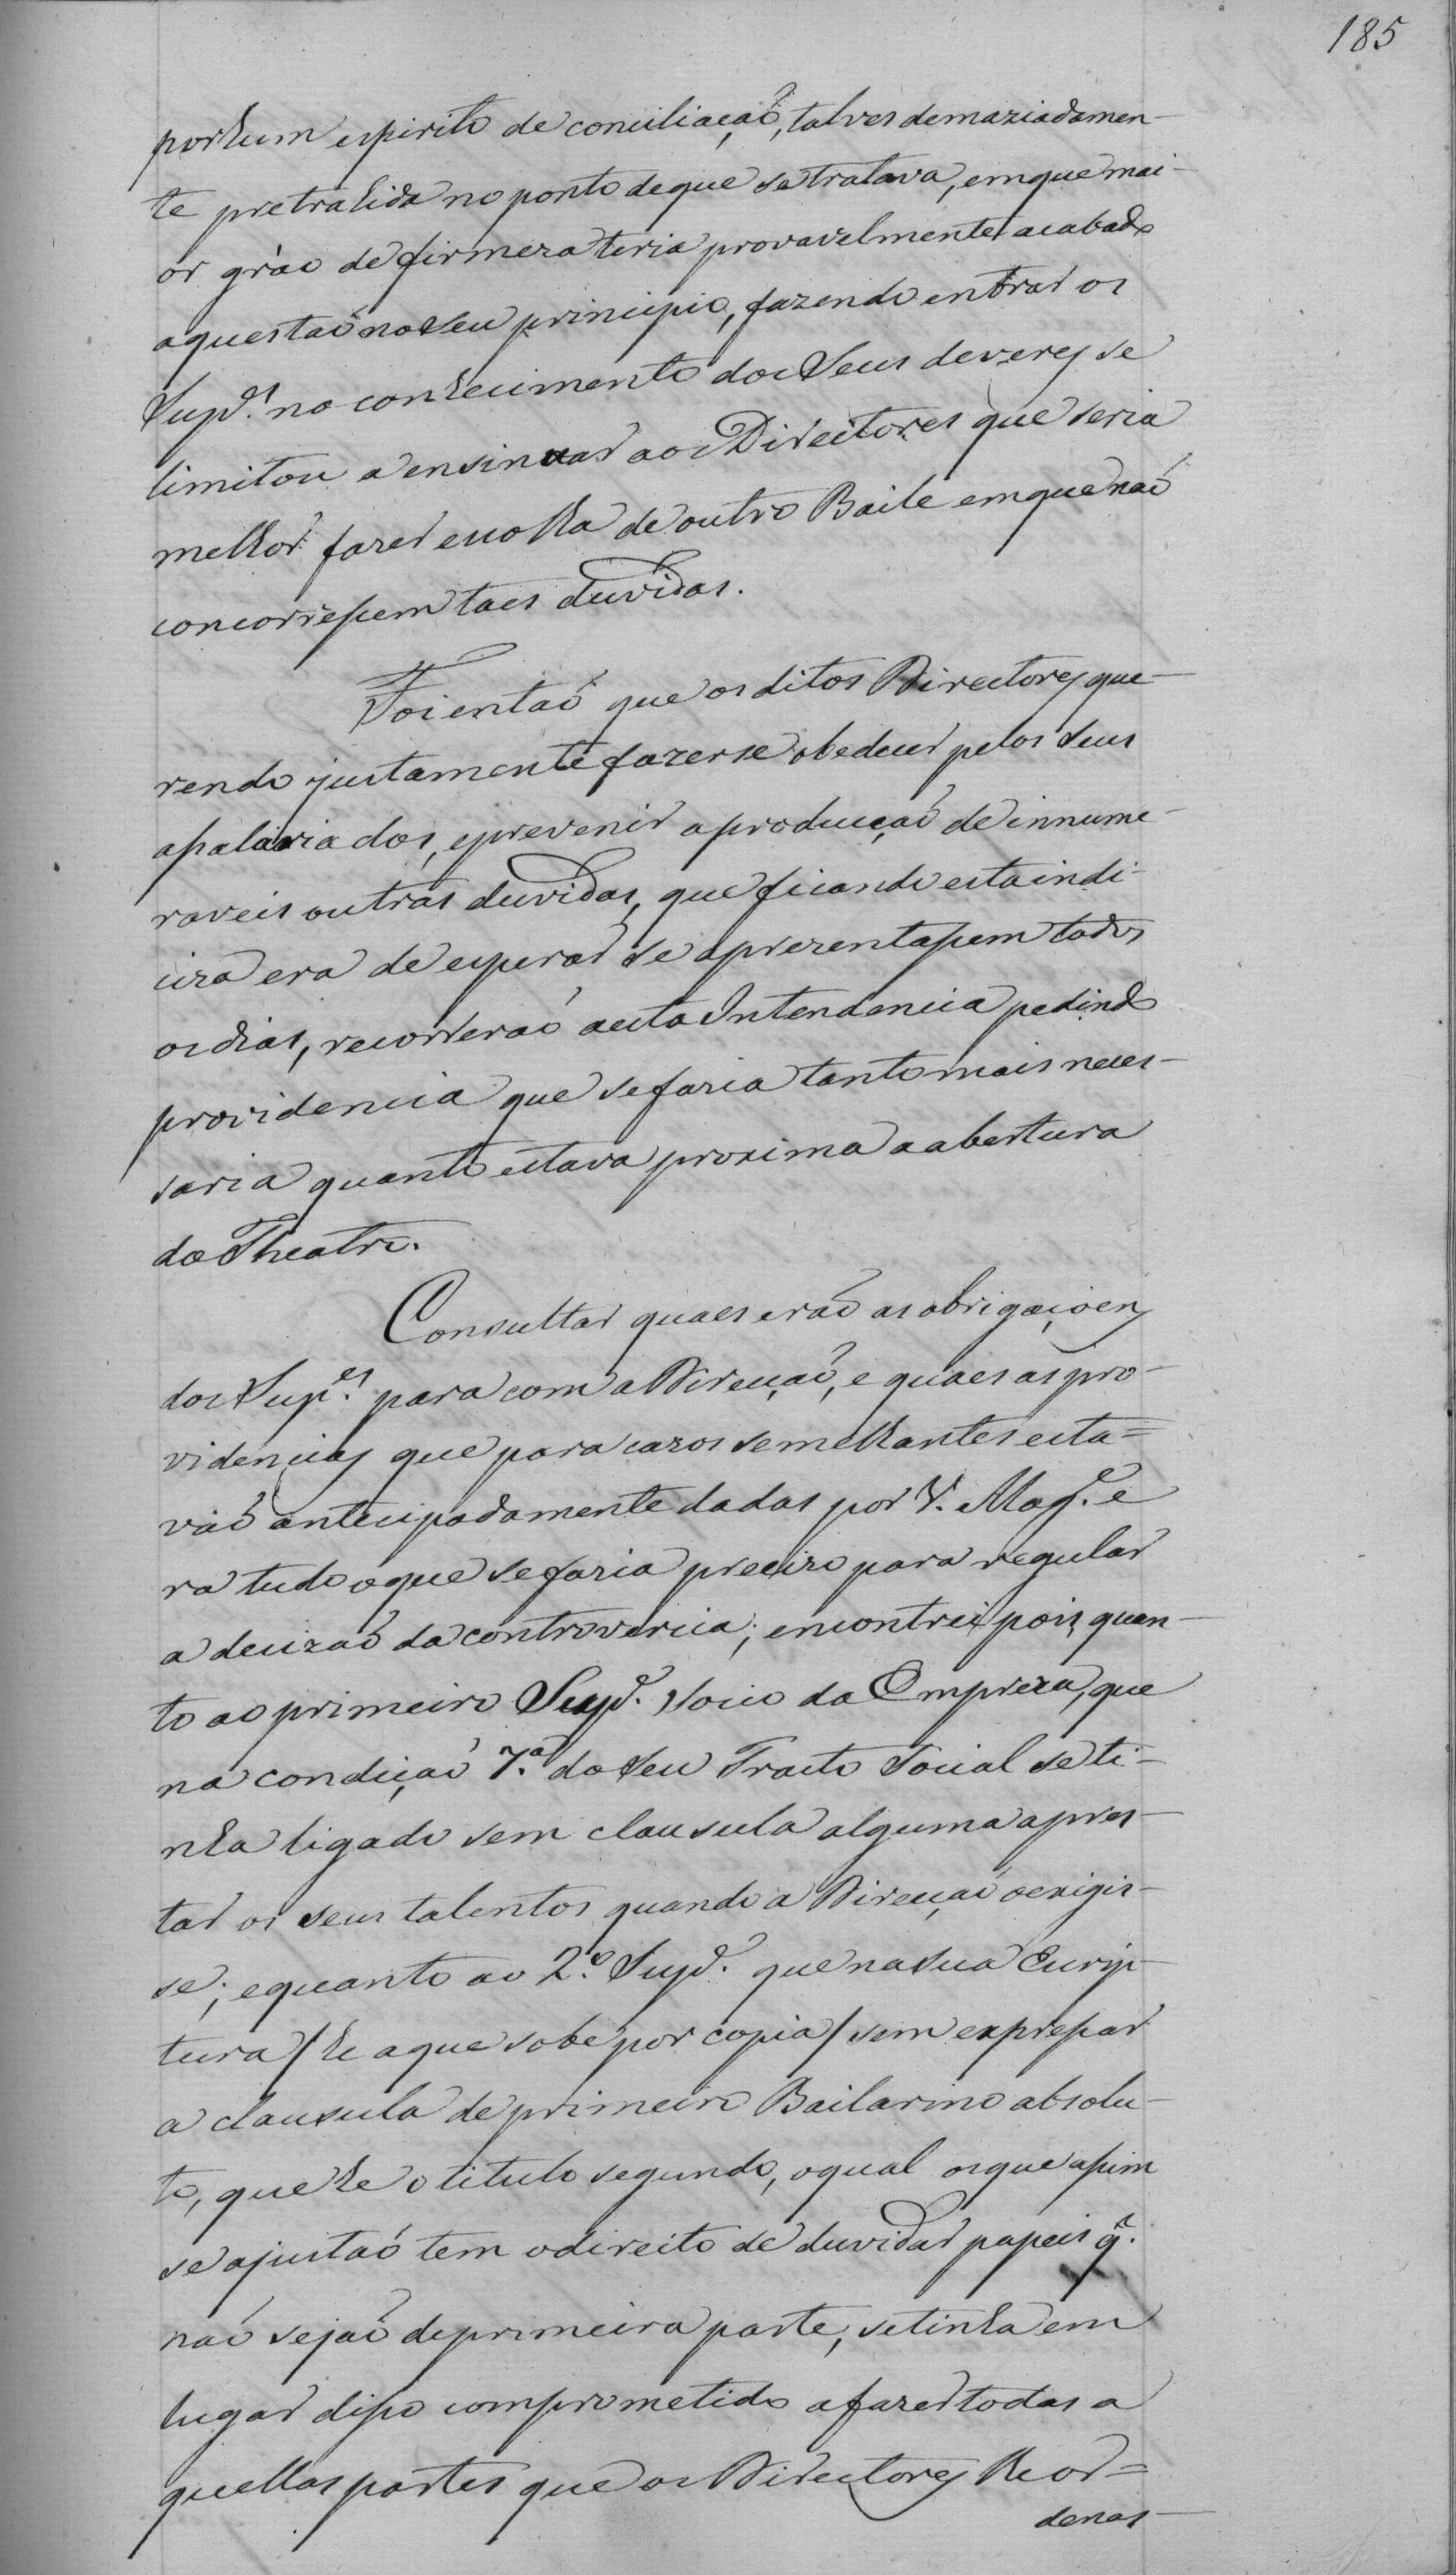 185
por hum espirito de conciliação, talves demaziadamen-
te pretrahida no ponto de que se tratava, em que mai-
or gráo de firmeza teria provavelmente acabado
a questaõ no seu principio, fazendo entrar os
Sup.es no conhecimento dos Seus deveres se
limitou a ensinuar aos Directores que seria
melhor fazer escolha de outro Baile em que naõ
concorressem taes duvidas.
Foi entaõ que os ditos Directores que-
rendo justamente fazerse obedecer pelos seus
assalariados, e prevenir a producçaõ de innume-
raveis outras duvidas, que ficando esta indi-
ciza era de esperar se aprezentassem todos
os dias, recorreraõ a esta Intendencia pedindo
providencia que se fazia tanto mais neces-
saria quanto estava proxima a abertura
do Theatro.
Consultar quaes eraõ as obrigaçoens
dos Sup.es para com a Direcçaõ, e quaes as pro-
videncias que para cazos semelhantes esta=
vaõ antecipadamente dadas por V. Mag.e e
ra tudo o que se fazia precizo para regular
a decizaõ da controvercia; encontrei pois, quan-
to ao primeiro Sup.e Socio da Empreza, que
na condiçaõ 7.a do seu Tracto Social se ti-
nha ligado sem clausula alguma a pres-
tar os seus talentos quando a Direcçaõ o exigis-
se; e quanto ao 2.o Sup.e que na sua Escrip-
tura / he a que sobe por copia / sem expressar
a clausula de primeiro Bailarino absolu-
to, que he o titulo segundo, o qual os que assim
se ajustaõ tem o direito de duvidar papeis q.
naõ sejaõ de primeira parte, se tinha em
lugar disso comprometido a fazer todas a
quellas partes que os Directores lhe or=
denas-